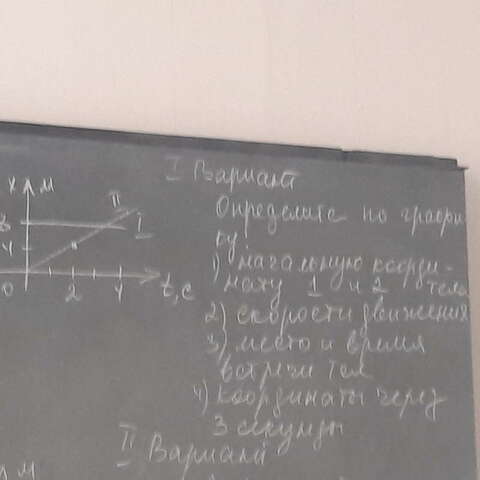 I Вариант
x, м
II
Определите по графи
I
8
ку:
4
1) начальную коорди-
нату 1 и 2 тела
0 2 4 t, c
2) скорости движения
3) место и время
встречи тел
4) координаты через
3 секунды
II Вариант
м